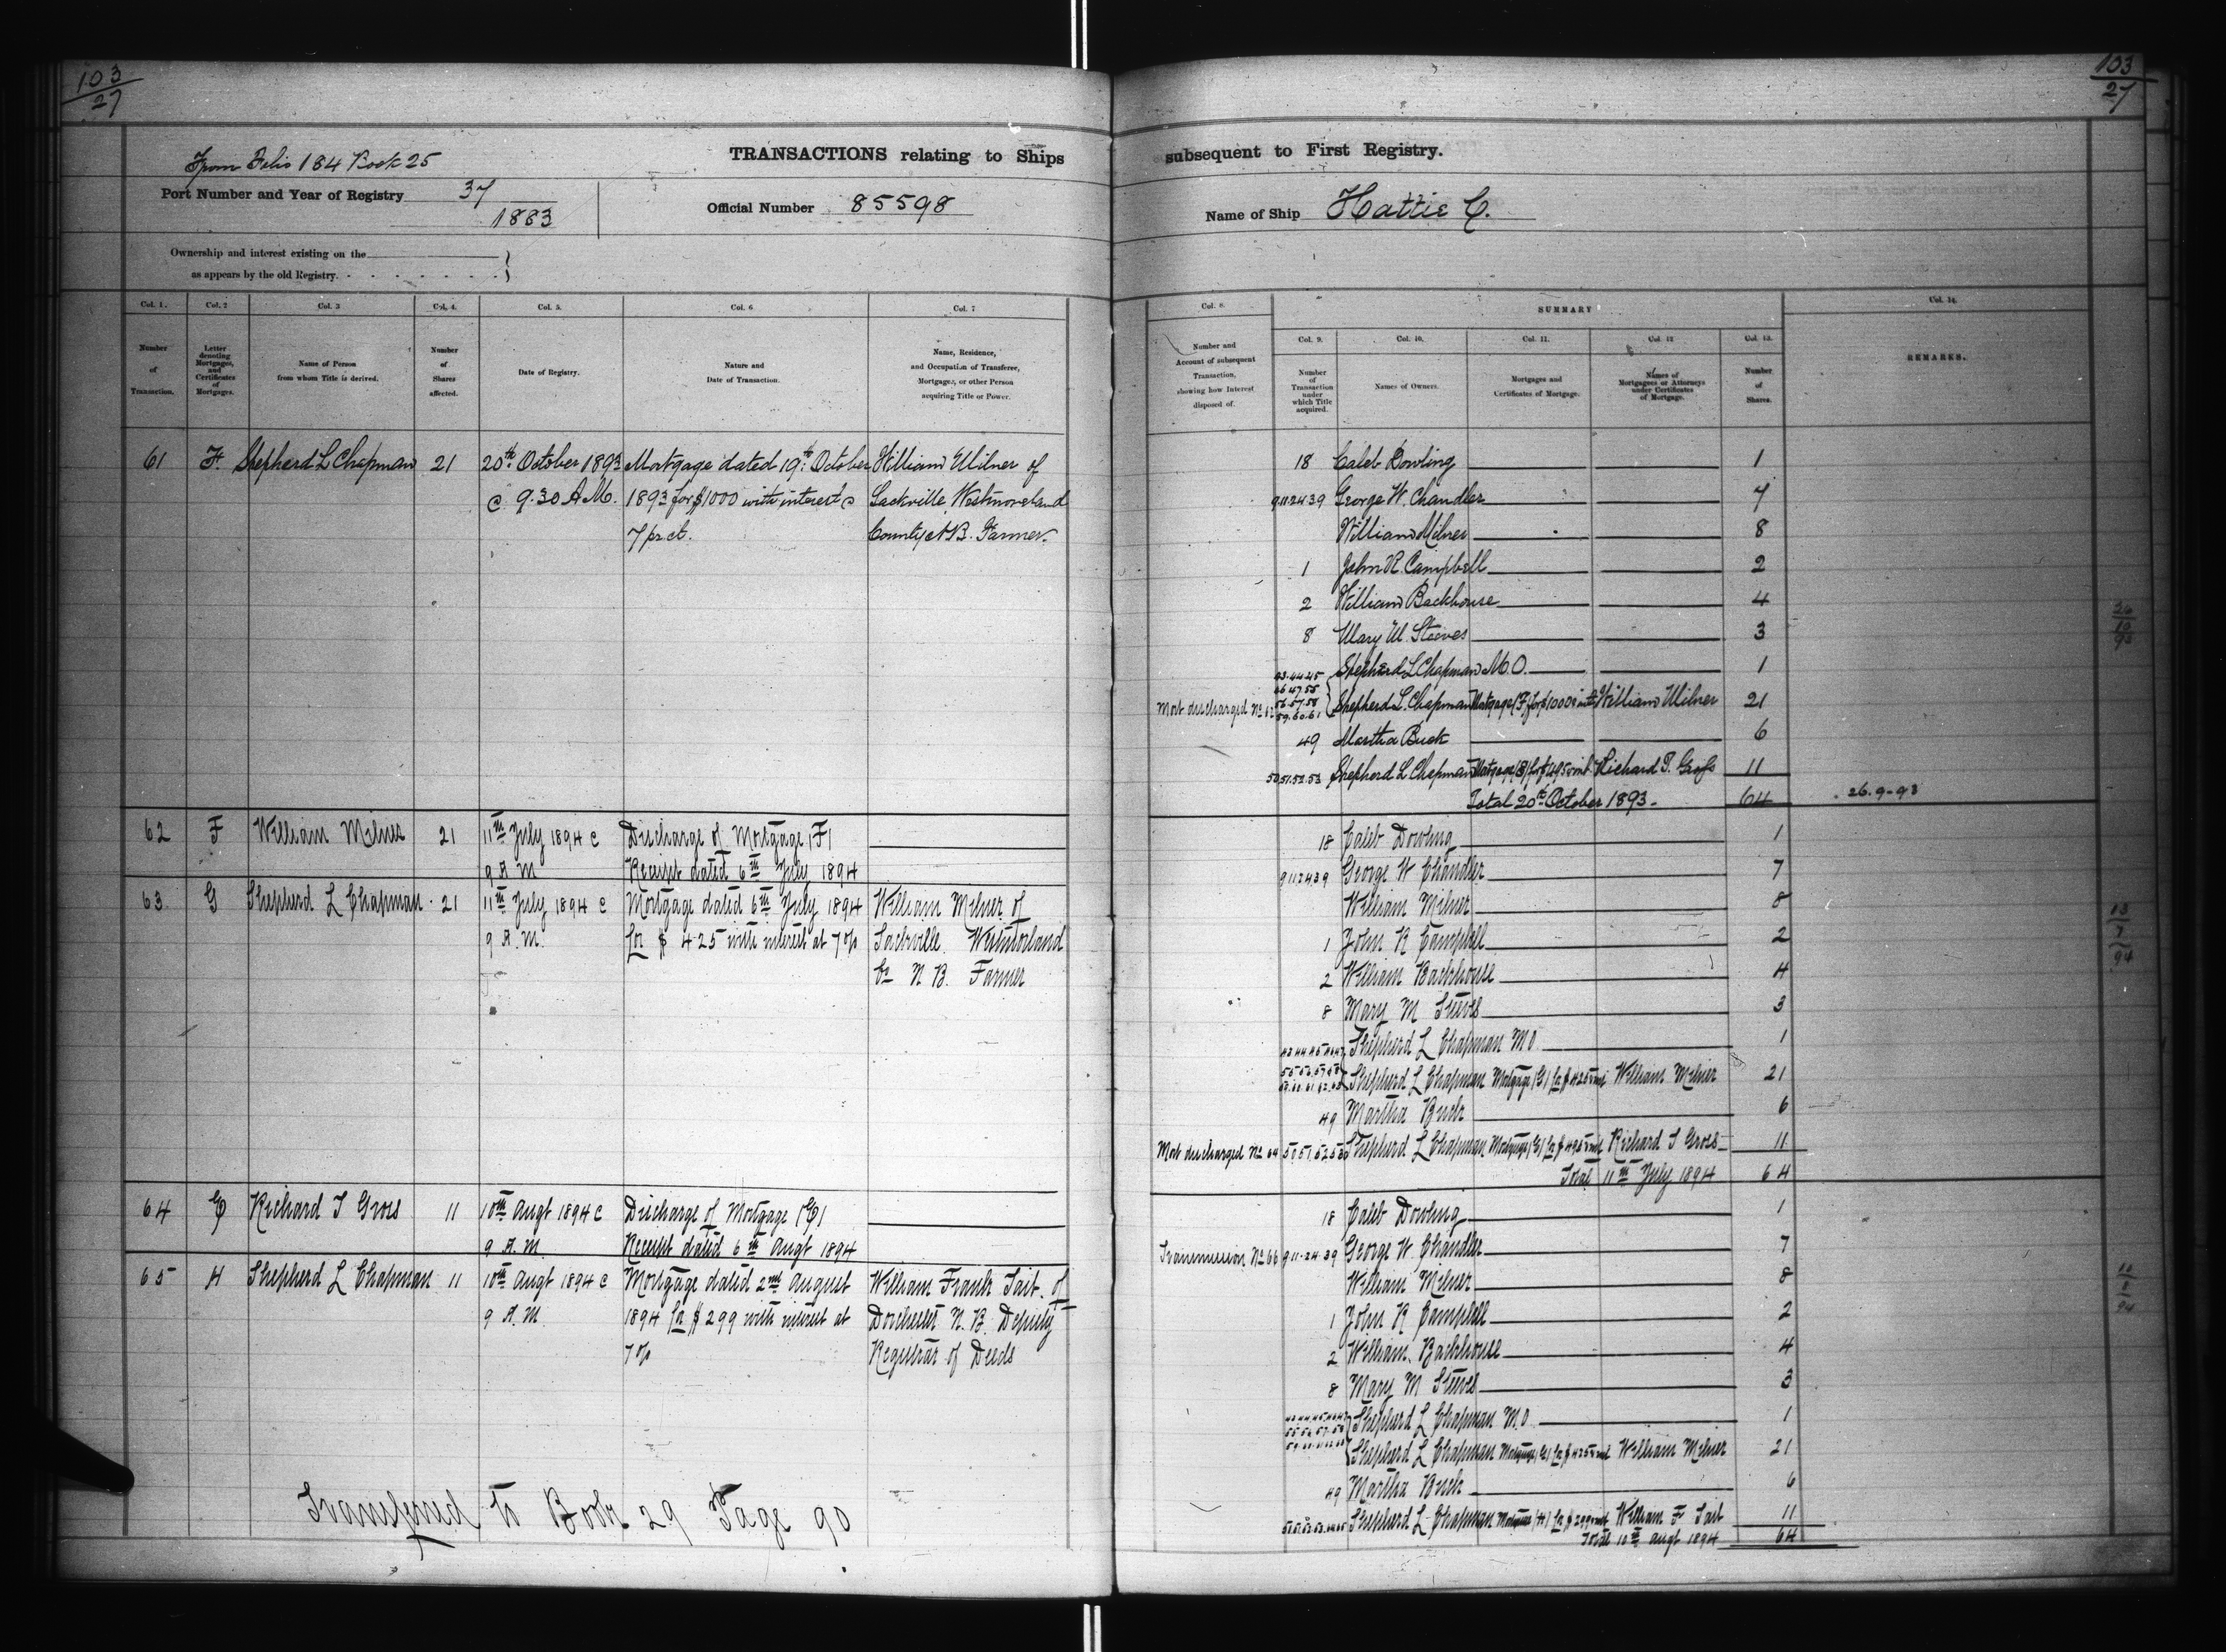 103
27
From Folio 184 Book 25
TRANSACTIONS relating to Ships
Port Number and Year of Registry 37
1883
Official Number 85598
Ownership and interest existing on the
as appears by the old Registry.
Col. 1.
Number of Transaction.
Col. 2
Letter denoting Mortgages, and Certificates of Mortgages.
Col. 3
Name of Person from whom Title is derived.
Col. 4.
Number of Shares affected.
Col. 5.
Date of Registry.
Col. 6
Nature and Date of Transaction.
Col. 7
Name, Residence, and Occupation of Transferee, Mortgagee, or other Person acquiring Title or Power.
61 F. Shepherd L Chapman 21 20th October 1893 Mortgage dated 19th October William Milner of
@ 9.30 A.M. 1893 for $1000 with interest @ Sackville, Westmoreland
7 pr ct. County N.B. Farmer.
62 F William Milner 21 11th July 1894 @ Discharge of Mortgage (F)
9 A M Receipt dated 6th July 1894
63 G Shepherd L Chapman 21 11th July 1894 @ Mortgage dated 6th July 1894 William Milner of
9 A.M. for $ 425 with interest at 7 % Sackville Westmorland
Co N B. Farmer
64 E Richard T Gross 11 10th Augt 1894 @ Discharge of Mortgage (E)
9 A.M. Receipt dated 6th Augt 1894
65 H Shepherd L Chapman 11 10th Augt 1894 @ Mortgage dated 2nd August William Frank Tait of
9 A.M 1894 for $ 299 with interest at Dorchester N.B. Deputy
7 % Registrar of Deeds
Transferred to Book 29 Page 90
103
27
subsequent to First Registry.
Name of Ship Hattie C.
Col. 8.
Number and Account of subsequent Transaction, showing how Interest disposed of.
SUMMARY
Col. 9.
Number of Transaction under which Title acquired.
Col. 10.
Names of Owners.
Col. 11.
Mortgages and Certificates of Mortgage.
Col. 12
Names of Mortgagees or Attorneys under Certificates of Mortgage.
Col. 13.
Number of Shares.
Col. 14.
REMARKS.
18 Caleb Dowling 1
9.11.24.39 George W. Chandler 7
William Milner 8
1 John R. Campbell 2
2 William Backhouse 4
8 Mary M. Steeves 3
Shepherd L Chapman M.O. 1
Mort discharged No 62 Shepherd L. Chapman Mortgage (F) for $1000 & int William Milner 21
49 Martha Buck 6
50.51.52.53 Shepherd L Chapman Mortgage (E) for $495 & int Richard T. Gross 11
Total 20th October 1893. 64
26.9.93
18 Caleb Dowling 1
9 11 24 39 George W Chandler 7
William Milner 8
1 John R Campbell 2
2 William Backhouse 4
8 Mary M Steeves 3
Shepherd L Chapman M O 1
Shepherd L Chapman Mortgage (G) for $425 & int William Milner 21
49 Martha Buck 6
Mort discharged No 64 50 51 52 53 Shepherd L Chapman Mortgage (E) for $495 & int Richard T Gross 11
Total 11th July 1894 64
18 Caleb Dowling 1
Transmission No 66 9.11.24.39 George W Chandler 7
William Milner 8
1 John R Campbell 2
2 William Backhouse 4
8 Mary M Steeves 3
Shepherd L Chapman M.O. 1
Shepherd L Chapman Mortgage (G) for $425 & int William Milner 21
49 Martha Buck 6
Shepherd L Chapman Mortgage (H) for $299 & int William F Tait 11
Total 10th Augt 1894 64